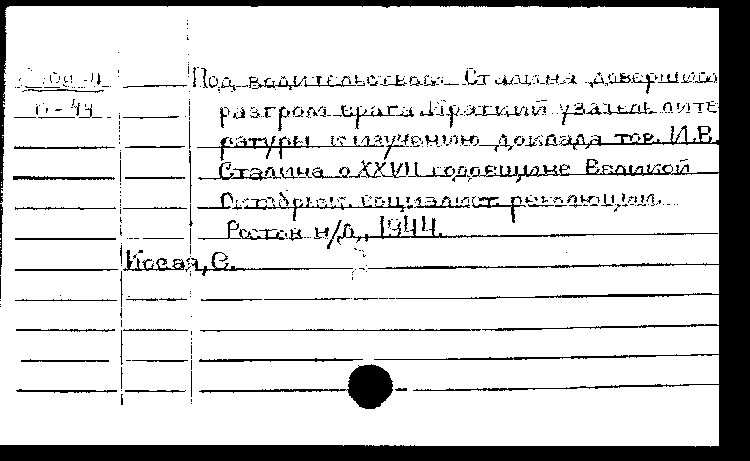 Под водительством Сталина довершим
разгром врага. Краткий узатель лите
П-44
ратуры к изучению доклада тов. И.В.
Сталина о XXVII годовщине Великой
Октябрьск. социалист. революции.
Ростов н/Д., 1944.
Косая, С.